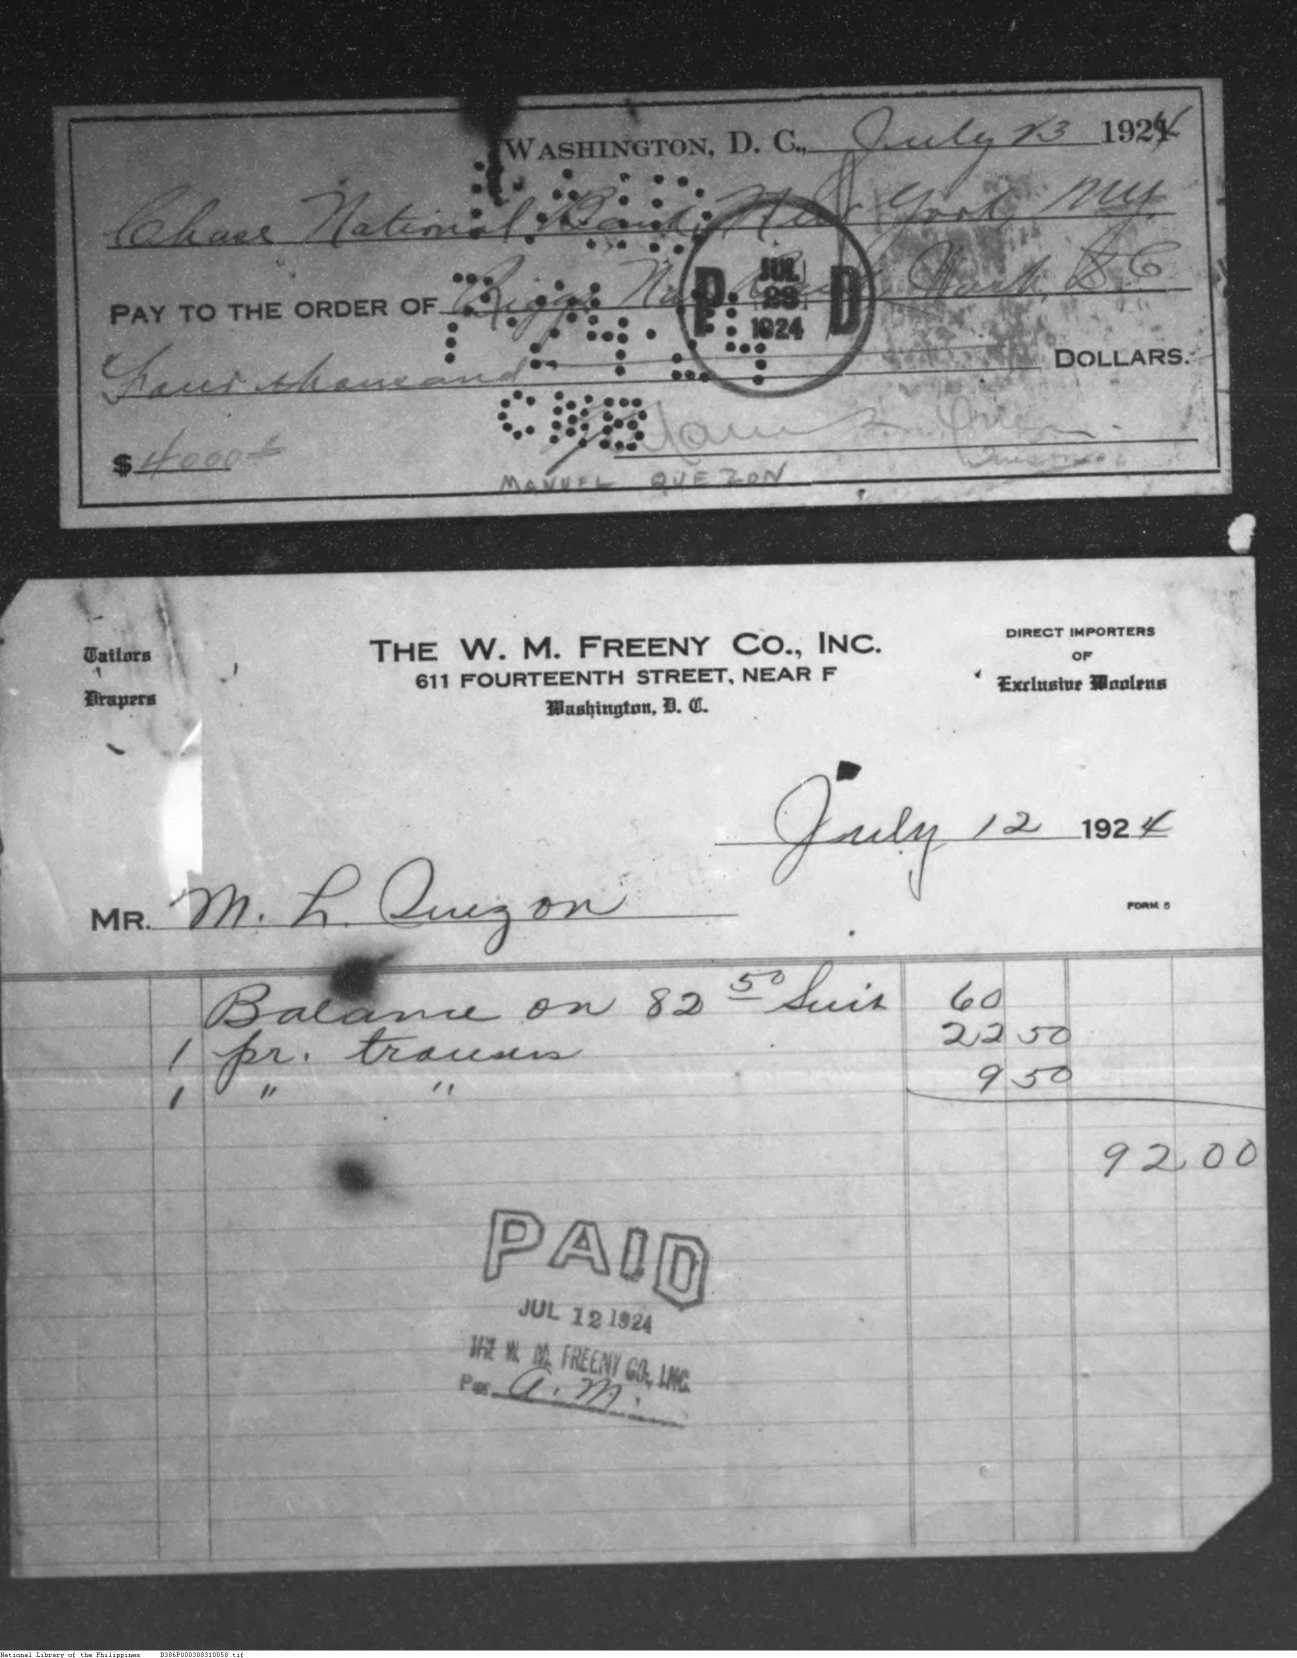 WASHINGTON, D. C., July 23 1924
Chase National Bank, New York, NY.
PAY TO THE ORDER OF Riggs Nat. Bank Wash. D C
Four thousand DOLLARS.
$ 4000
MANUEL QUEZON
PAID
JUL
23
1924
7-24-24
Tailors
Drapers
THE W. M. FREENY CO., INC.
611 FOURTEENTH STREET, NEAR F
Washington, D. C.
DIRECT IMPORTERS
OF
Exclusive Woolens
July 12 1924
MR. M. L. Quezon
FORM 5
Balance on 82 50 Suit 60
1 pr. trousers 22 50
1 " " 9 50
92.00
PAID
JUL 12 1924
THE W. M. FREENY CO., INC.
Per A. M.
National Library of the Philippines B386P000388310058.tif